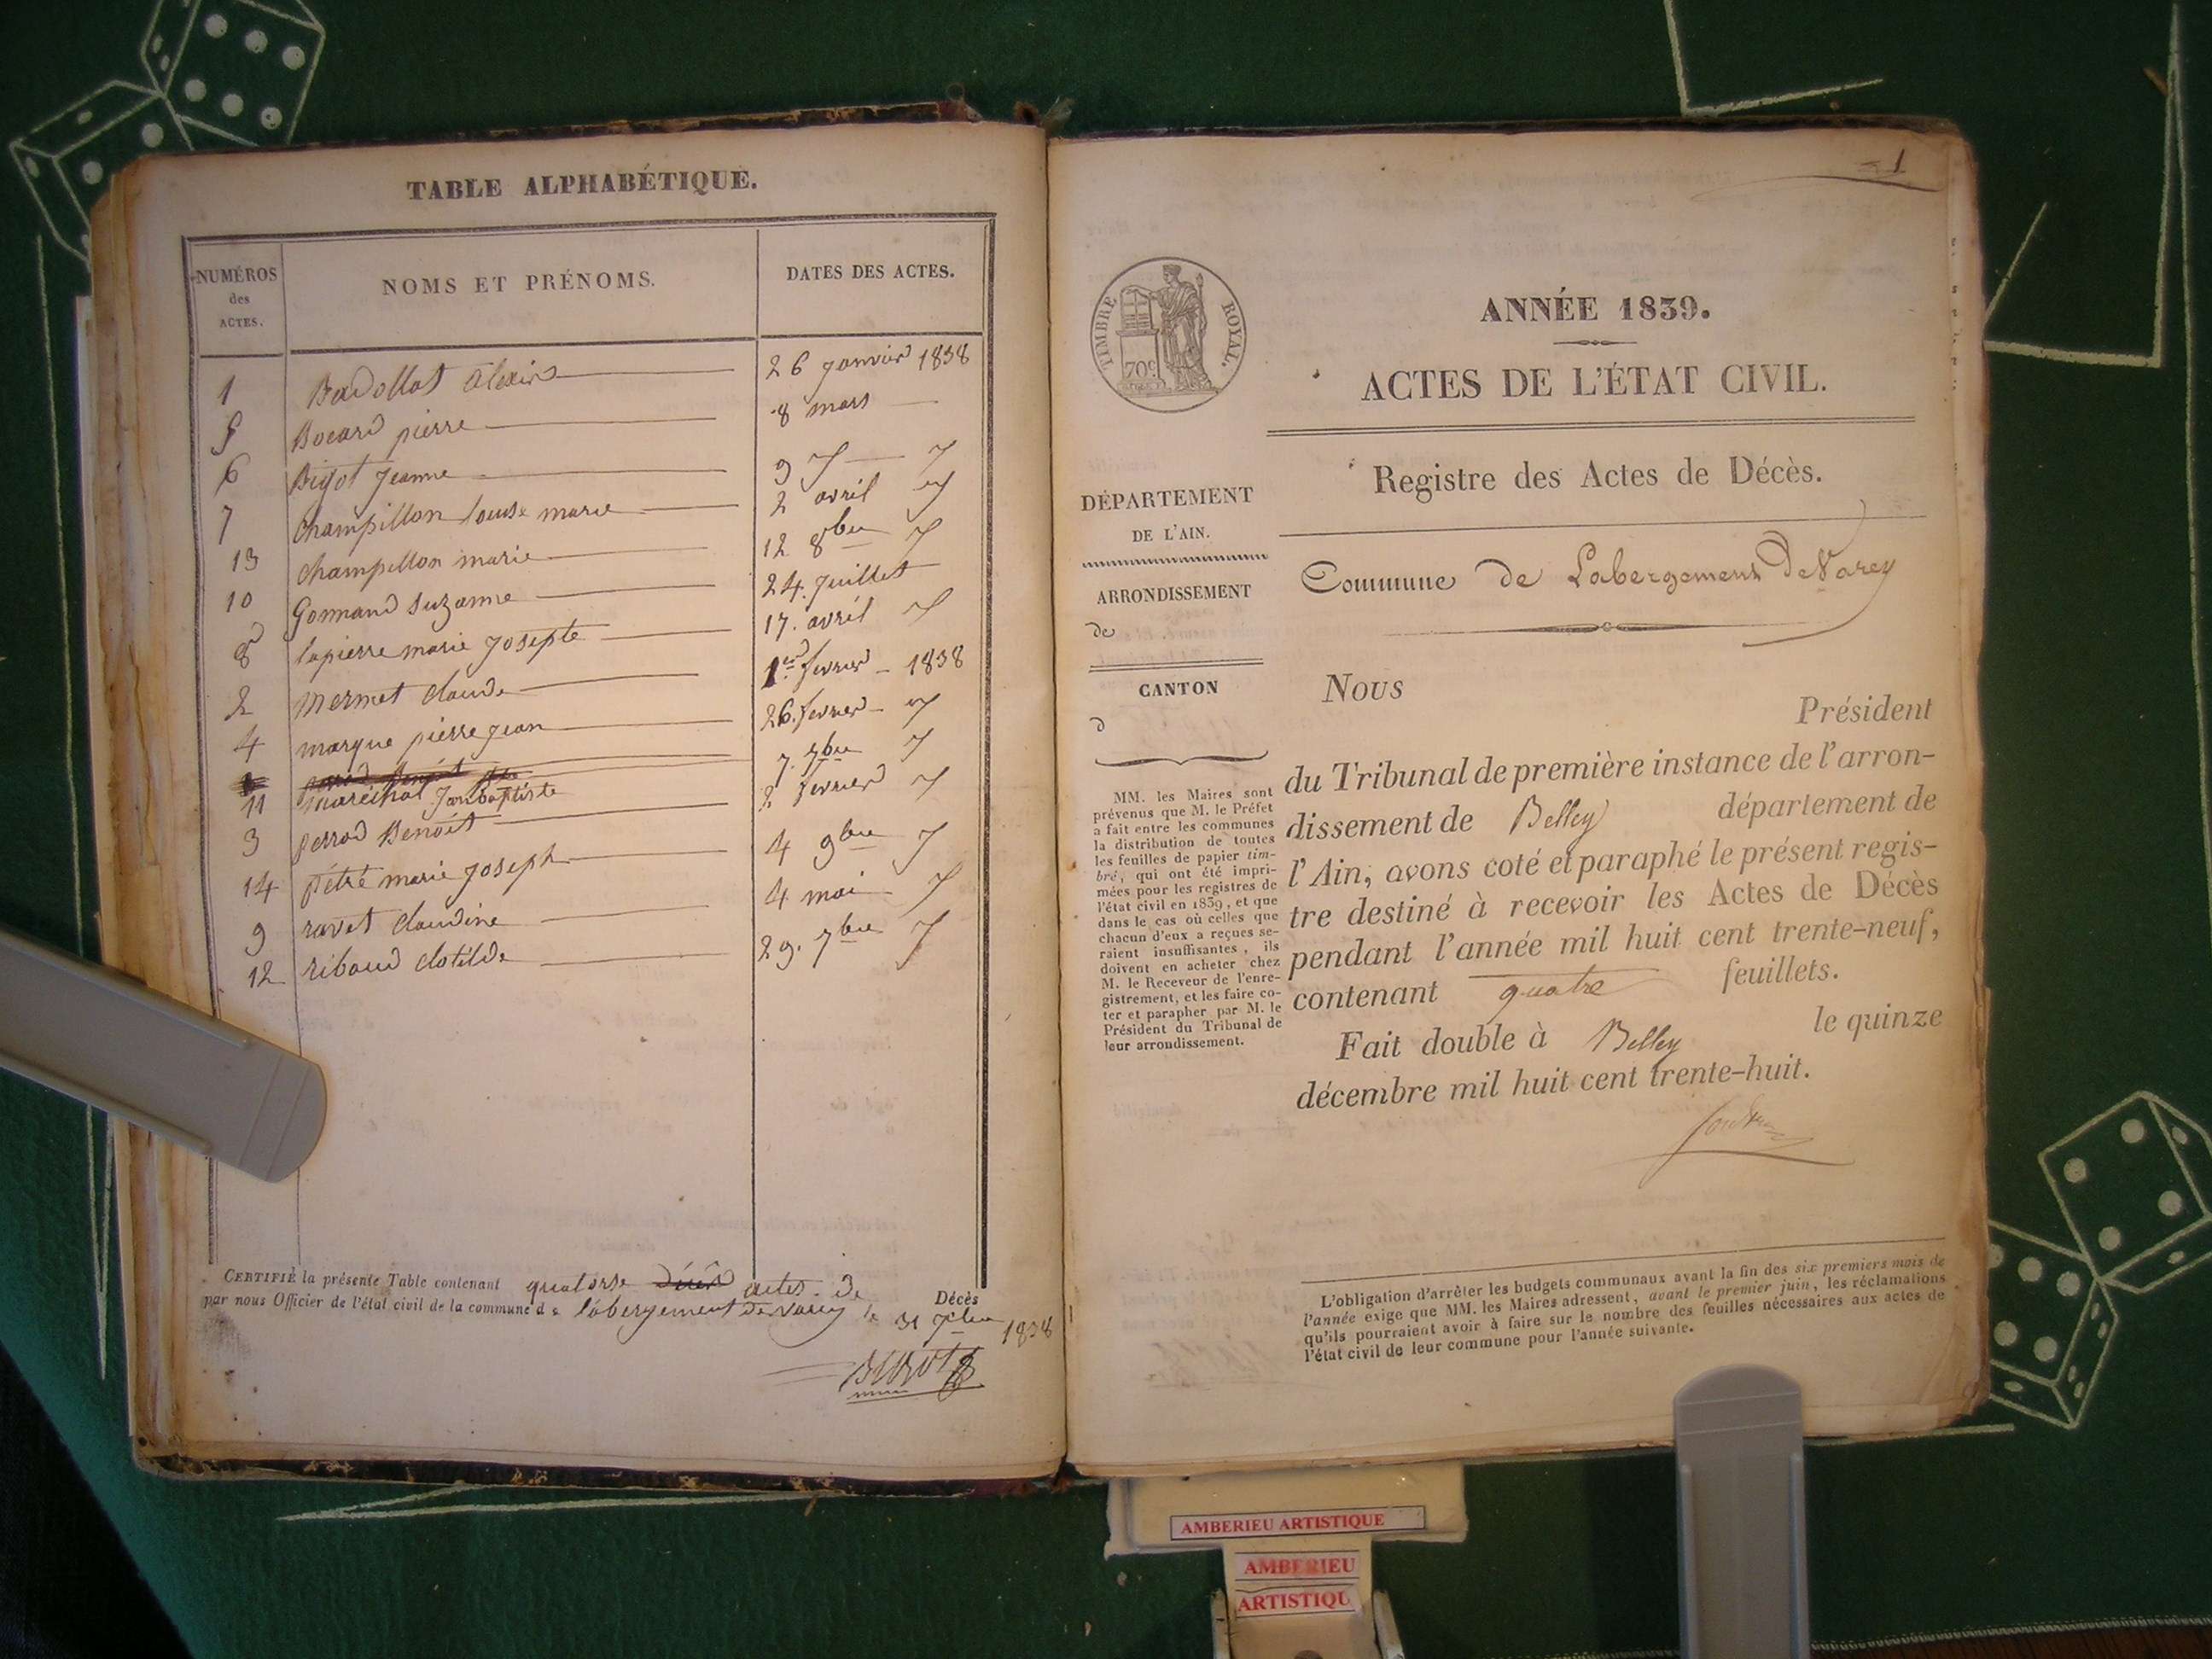 TABLE ALPHABÉTIQUE.
NUMÉROS des ACTES.
NOMS ET PRÉNOMS.
DATES DES ACTES.
1 Badollat alexis 26 janvier 1838
5 Bocard pierre 8 mars
6 Bigot jeanne 9
7 champillon louise marie 2 avril
13 champillon marie 12 8bre
10 Gonnand suzanne 24. juillet
8 lapierre marie josepte 17. avril
2 mermet claude 1er fevrier - 1838
4 marque pierre jean 26. fevrier
11 marechal jean baptiste 7. 7bre
3 perrod Benoit 2 fevrier
14 pétré marie joseph 4 9bre
9 ravet claudine 4 mai
12 ribaud clotilde 29. 7bre
CERTIFIÉ la présente Table contenant quatorse actes de Décès
par nous Officier de l'état civil de la commune de l'abergement de varey le 31 1838
1
TIMBRE ROYAL.
70c.
ANNÉE 1839.
ACTES DE L'ÉTAT CIVIL.
Registre des Actes de Décès.
Commune de Labergement De Varey
DÉPARTEMENT
DE L'AIN.
ARRONDISSEMENT
de
CANTON
d
MM. les Maires sont
prévenus que M. le Préfet
a fait entre les communes
la distribution de toutes
les feuilles de papier tim-
bré, qui ont été impri-
mées pour les registres de
l'état civil en 1839, et que
dans le cas où celles que
chacun d'eux a reçues se-
raient insuffisantes, ils
doivent en acheter chez
M. le Receveur de l'enre-
gistrement, et les faire co-
ter et parapher par M. le
Président du Tribunal de
leur arrondissement.
Nous
Président
du Tribunal de première instance de l'arron-
dissement de Belley département de
l'Ain, avons coté et paraphé le présent regis-
tre destiné à recevoir les Actes de Décès
pendant l'année mil huit cent trente-neuf,
contenant quatre feuillets.
Fait double à Belley le quinze
décembre mil huit cent trente-huit.
L'obligation d'arrêter les budgets communaux avant la fin des six premiers mois de
l'année exige que MM. les Maires adressent, avant le premier juin, les réclamations
qu'ils pourraient avoir à faire sur le nombre des feuilles nécessaires aux actes de
l'état civil de leur commune pour l'année suivante.
AMBERIEU ARTISTIQUE
AMBERIEU
ARTISTIQU